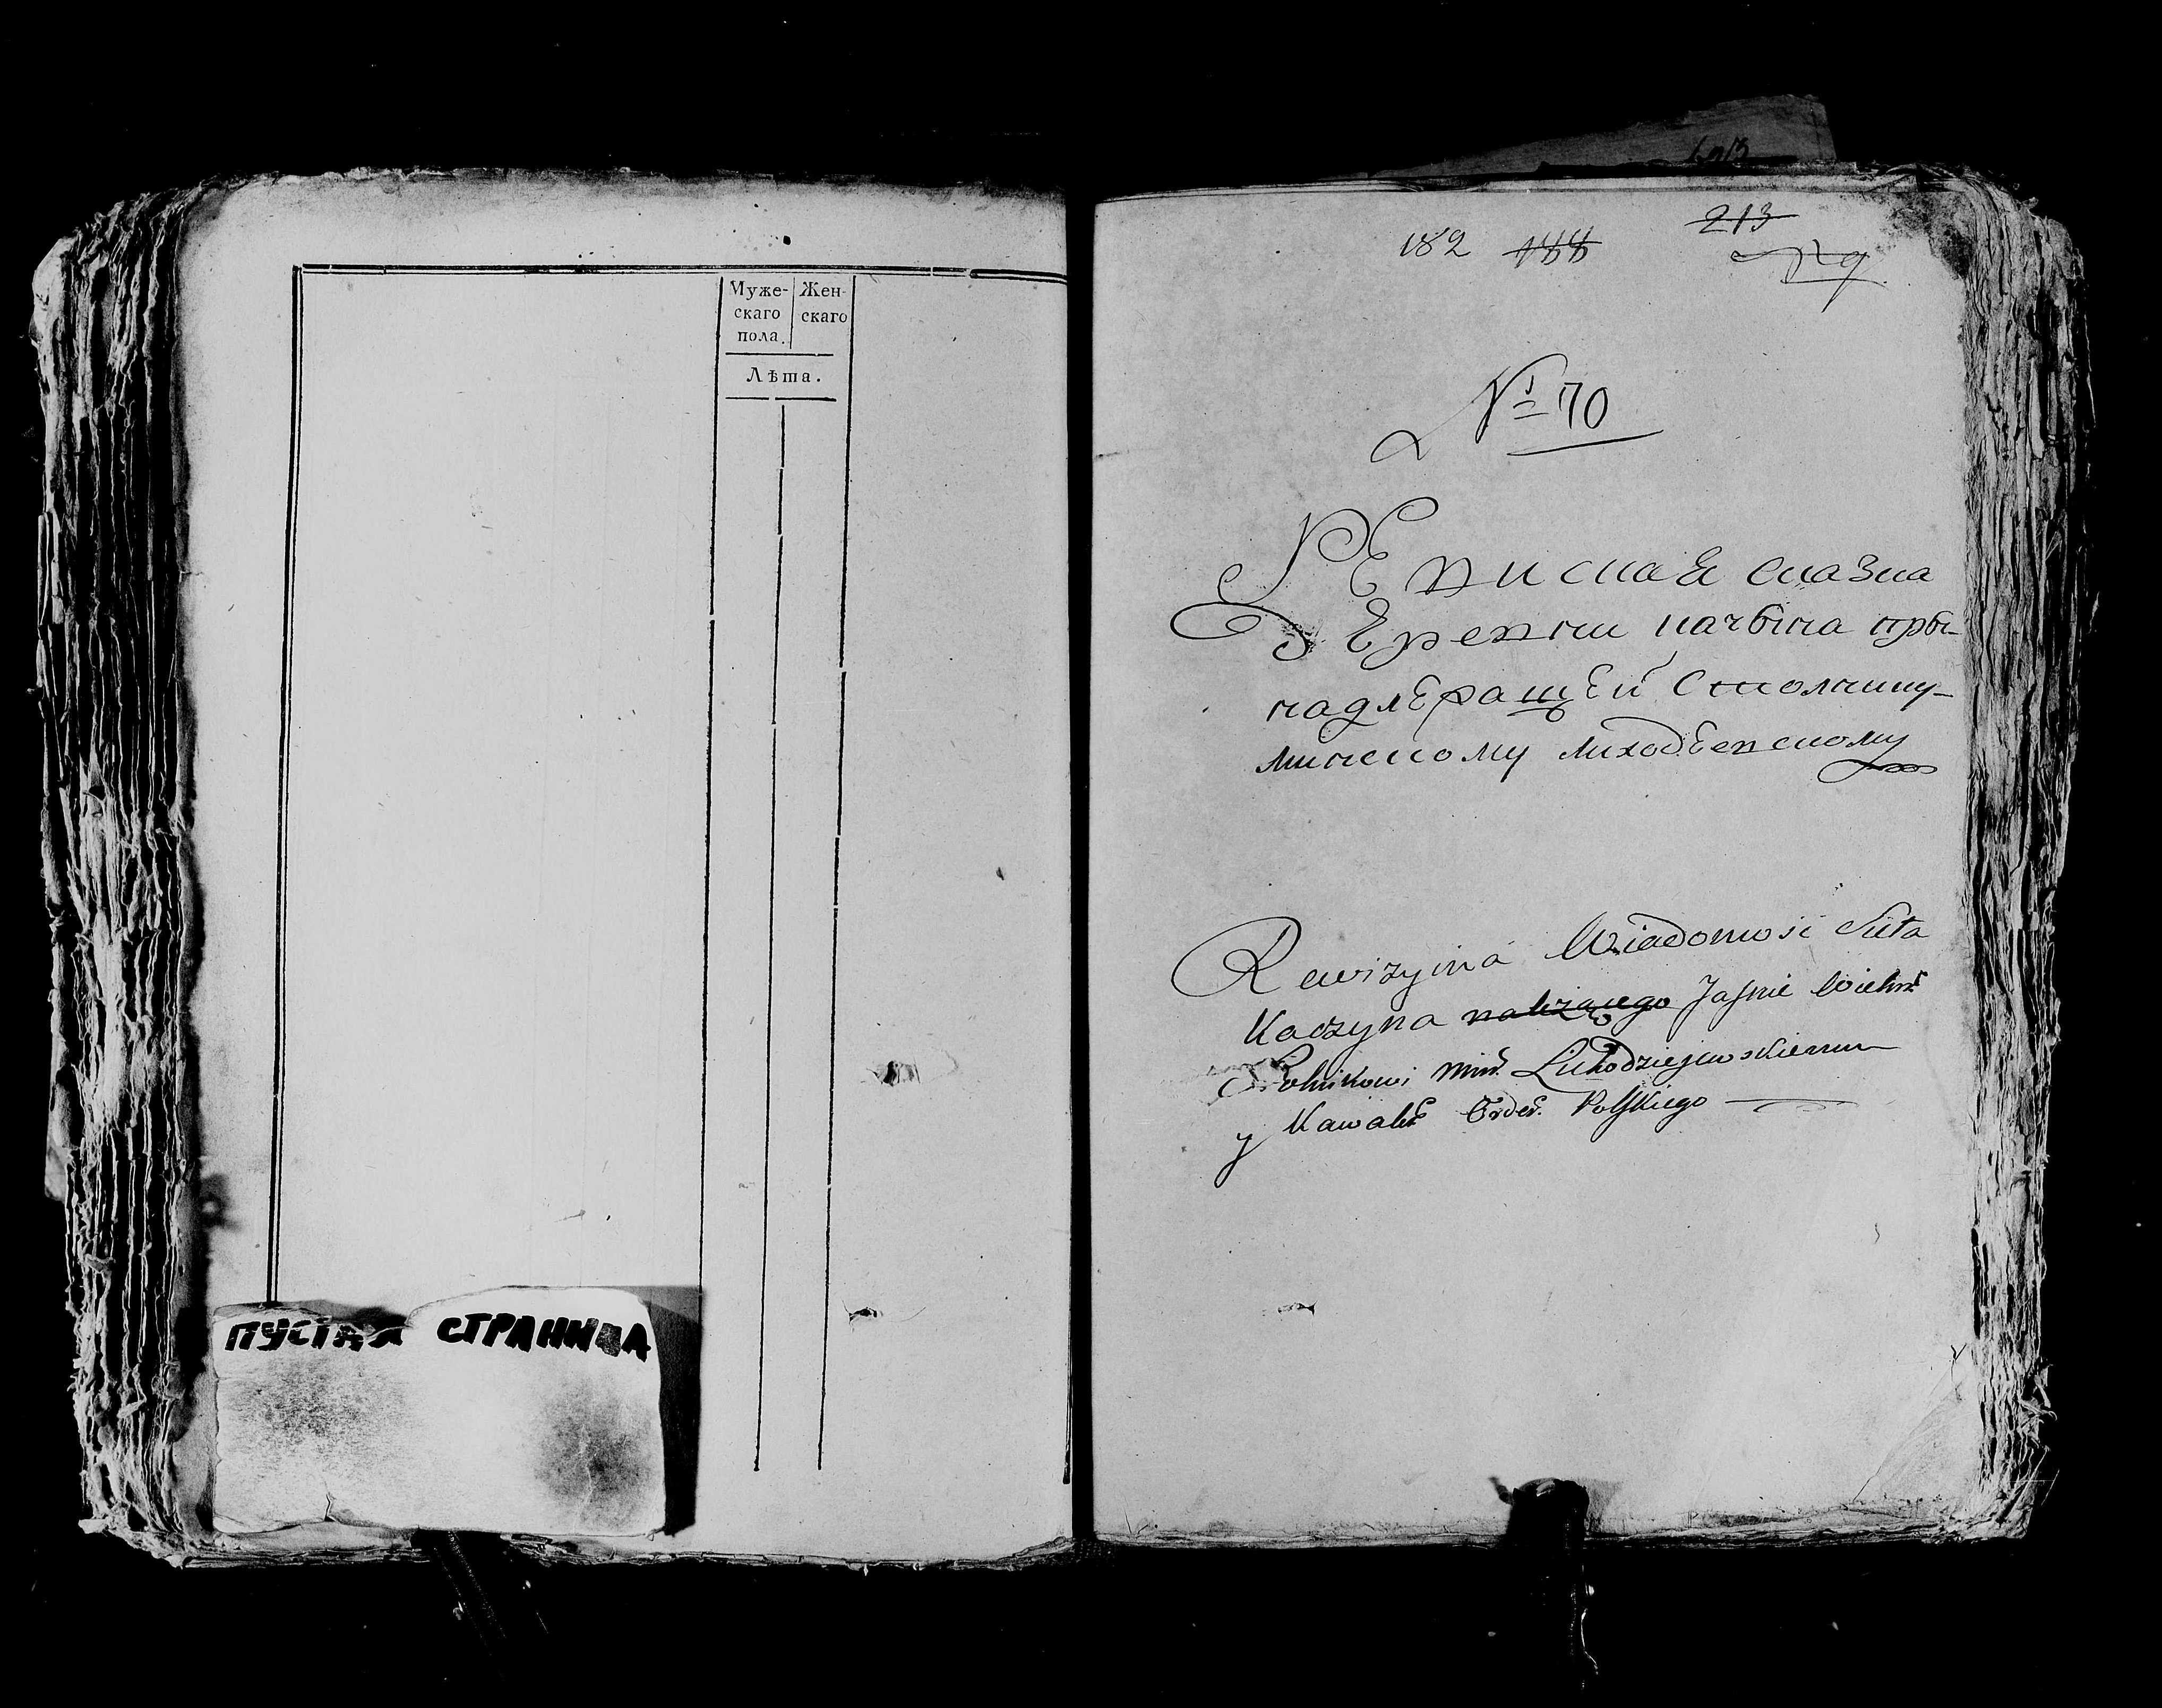 Муже- Жен-
скаго скаго
пола.
Лѣта.
ПУСТАЯ СТРАНИЦА
213
182 188
№ 70
РЕвиская сказка
дЕревни качына пры-
надлЕжащЕй Столнику
минскому лиходЕевскому
Rewizyina Wiadomosć Siıła
Kaczyna należącego Jaśnie Wielm.
Stolnikowi Miń. Lichodziejewskiemu
y Kawale. Order. Polskiego